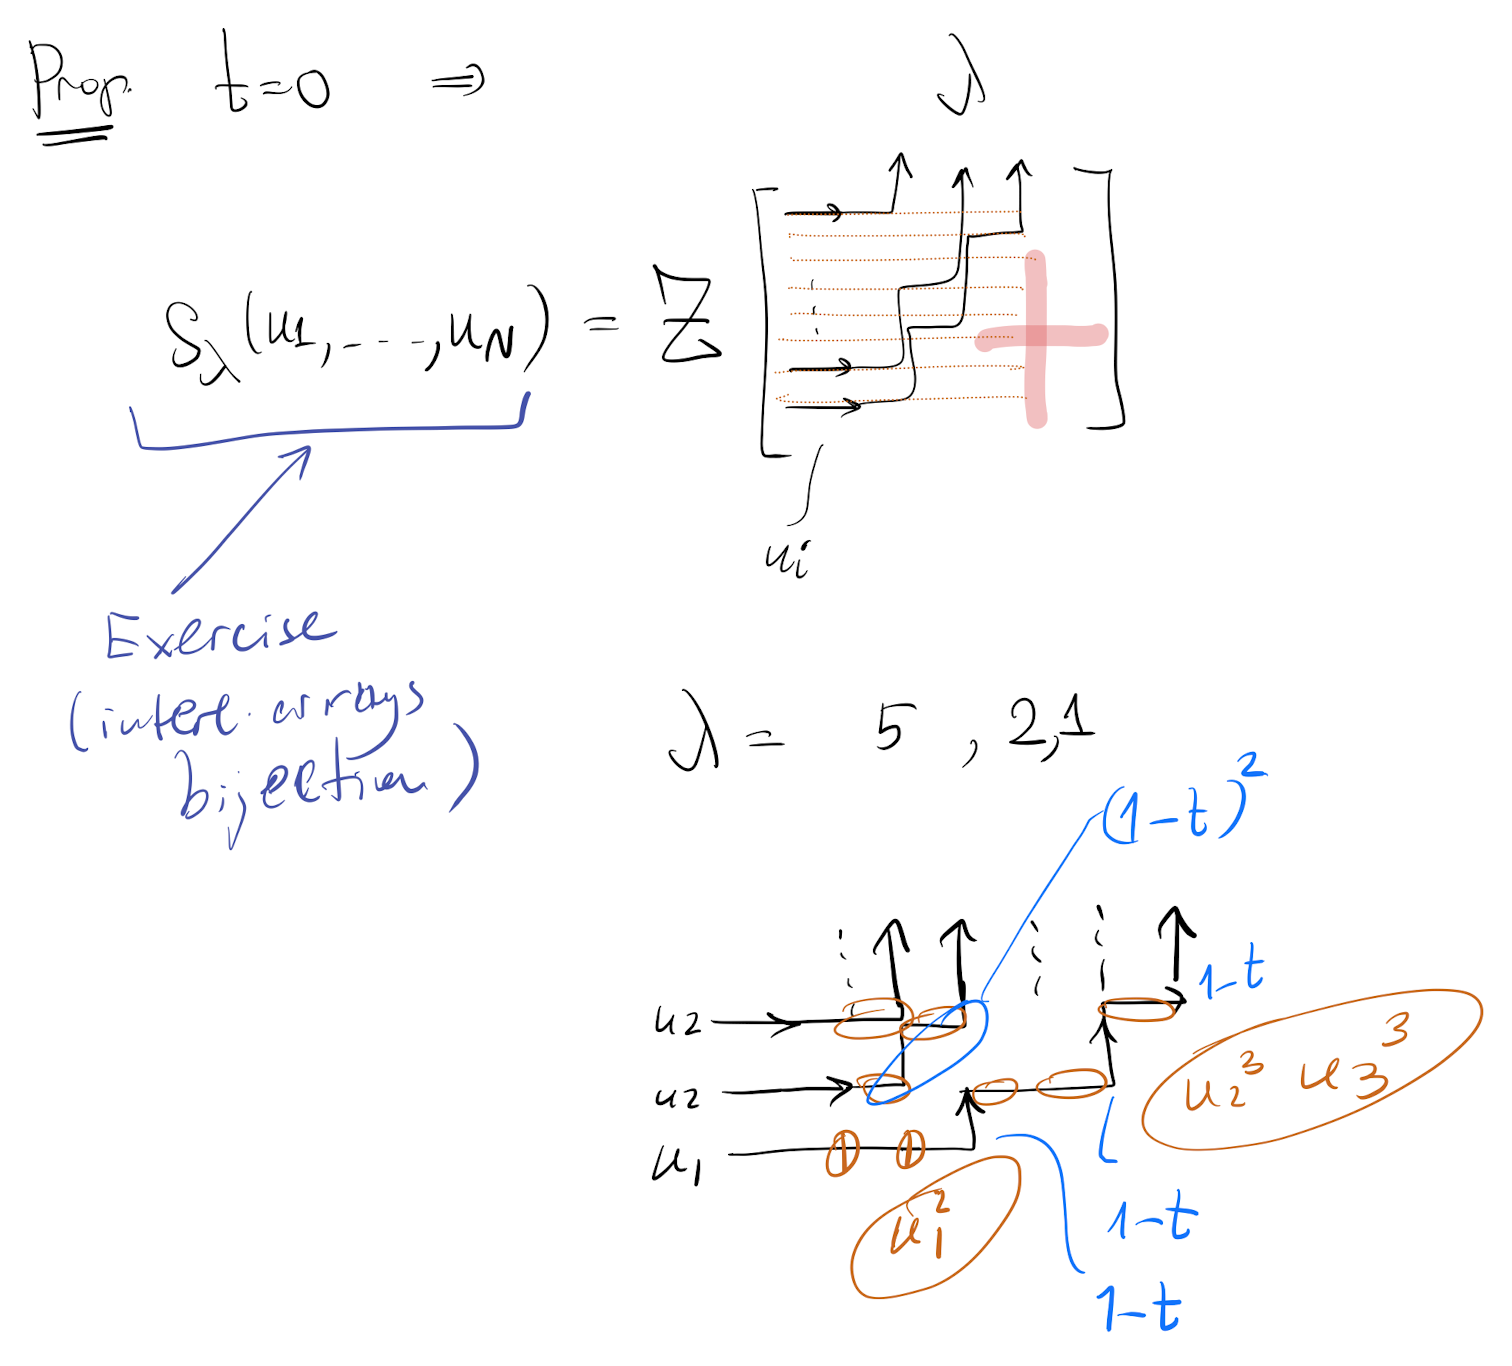 Prop. t=0 ⇒
λ
S_λ(u1, ..., uN) = Z
ui
Exercise
(interl. arrays
bijection)
λ = 5, 2, 1
(1-t)^2
1-t
u2
u2^3 u3^3
u2
u1
u1^2
1-t
1-t